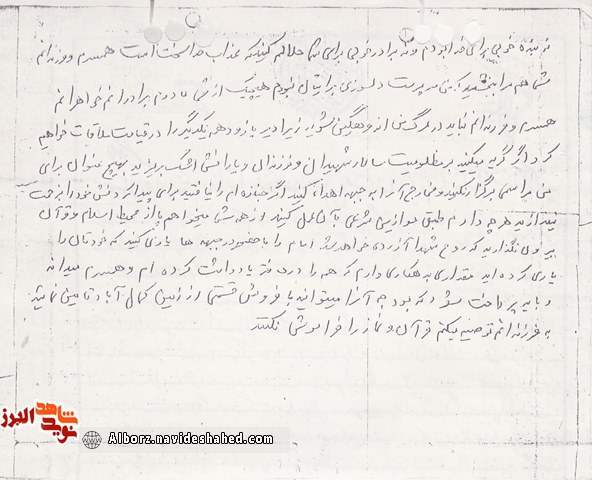 نه بنده خوبی برای خدا بودم و نه برادر خوبی برای شما حلالم کنید که عذاب خدا سخت است همسرم و فرزندانم
شما هم مرا ببخشید که من سرپرست دلسوزی برایتان نبودم هیچیک از شما مادرم برادرانم خواهرانم
همسرم و فرزندانم نباید در مرگ من اندوهگین شوید زیرا دیر یا زود همه یکدیگر را در قیامت ملاقات خواهیم
کرد اگر گریه میکنید بر مظلومیت سالار شهیدان و فرزندان و یارانش اشک بریزید بهیچ عنوان برای
من مراسمی برگزار نکنید و مخارج آنرا به جبهه اهدا کنید اگر جنازه ام را یافتید برای پیدا کردنش خود را بزحمت
نیندازید هر چه دارم طبق موازین شرعی با آن عمل کنید از همه شما میخواهم پا از محیط اسلام و قرآن
بیرون نگذارید که روح شهدا آزرده خواهد شد امام را با حضور در جبهه ها یاری کنید که خودتان را
یاری کرده اید مقداری بدهکاری دارم که همه را در دفتر یادداشت کرده ام و همسرم میداند
و باید پرداخت شود که بودجه آنرا میتوانید با فروش قسمتی از زمین کمال آباد تامین نمائید
به فرزندانم توصیه میکنم قرآن و نماز را فراموش نکنند
نوید شاهد البرز
Alborz.navideshahed.com